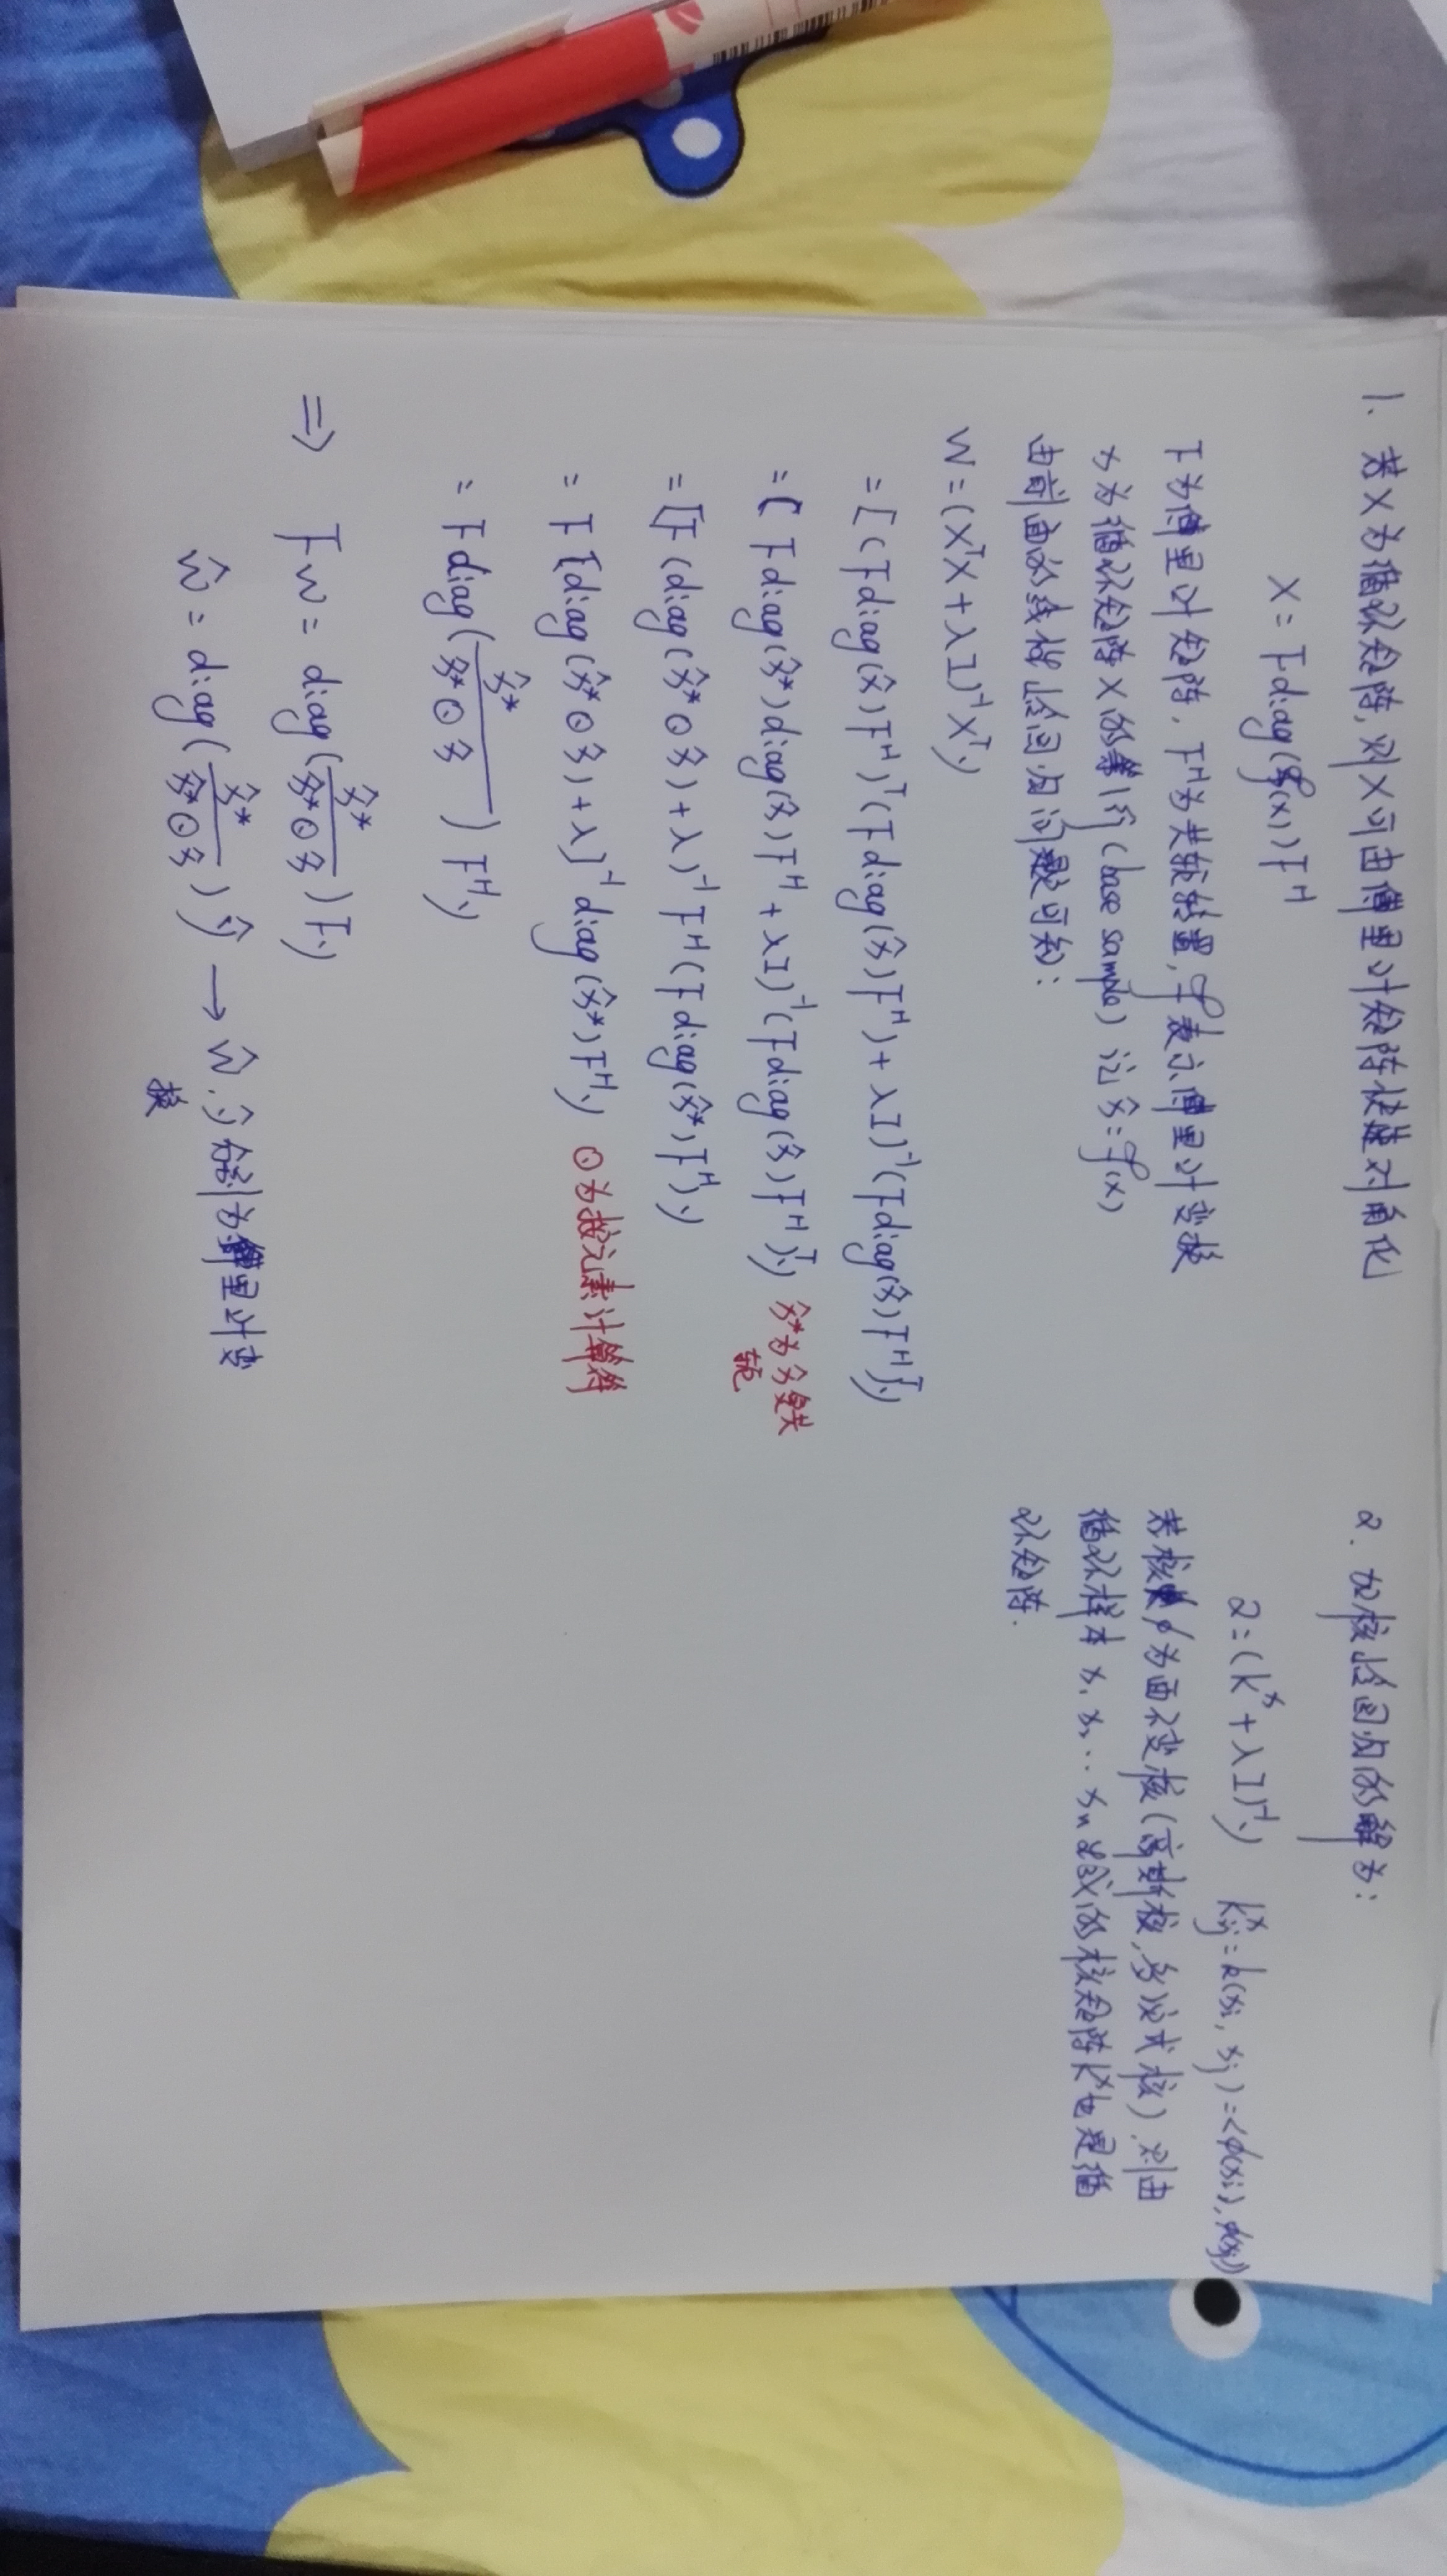 1. 若X为循环矩阵,则X可由傅里叶矩阵快速对角化
X = F diag(𝓕(x)) Fᴴ
F为傅里叶矩阵, Fᴴ为共轭转置, 𝓕表示傅里叶变换
x为循环矩阵X的第1行(base sample) 记 x̂=𝓕(x)
由前面的线性岭回归问题可知:
W = (XᵀX + λI)⁻¹Xᵀy
= [(F diag(x̂)Fᴴ)ᵀ(F diag(x̂)Fᴴ) + λI]⁻¹(F diag(x̂)Fᴴ)ᵀy
= (F diag(x̂*)diag(x̂)Fᴴ + λI)⁻¹(F diag(x̂)Fᴴ)ᵀy x̂*为x̂复共
轭
= [F(diag(x̂*⊙x̂) + λ)⁻¹Fᴴ(F diag(x̂*)Fᴴ)y
= F[diag(x̂*⊙x̂) + λ]⁻¹diag(x̂*)Fᴴy ⊙为按元素计算符
= F diag(x̂*/x̂*⊙x̂) Fᴴy
⇒ Fw = diag(x̂*/x̂*⊙x̂) Fy
ŵ = diag(x̂*/x̂*⊙x̂) ŷ → ŵ, ŷ分别为傅里叶变
换
2. 加核岭回归的解为:
α = (Kˣ + λI)⁻¹y Kˣᵢⱼ = k(xi, xj) = <φ(xi), φ(xj)>
若核φ为酉不变核(高斯核,多项式核),则由
循环样本 x₁ x₂ ... xn 造成的核矩阵Kˣ也是循
环矩阵.